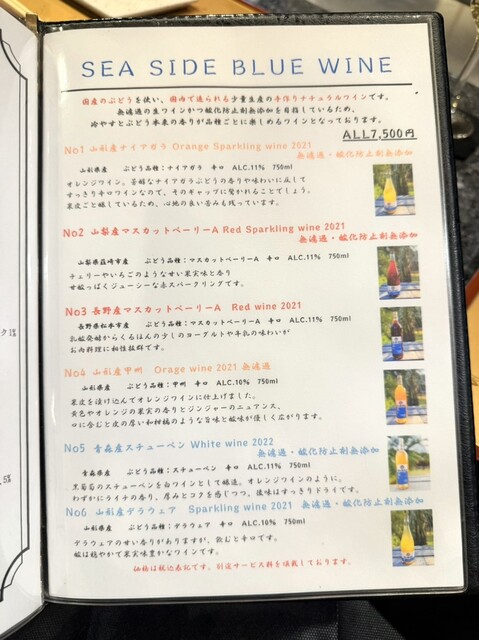 SEA SIDE BLUE WINE
国産のぶどうを使い、国内で造られる少量生産の手作りナチュラルワインです。
無濾過の生ワインかつ酸化防止剤無添加を目指しているため、
冷やすとぶどう本来の香りが品種ごとに楽しめるワインとなっております。
ALL7,500円
No1 山形産ナイアガラ Orange Sparkling wine 2021
無濾過・酸化防止剤無添加
山形県産 ぶどう品種:ナイアガラ 辛口 ALC.11% 750ml
オレンジワイン。芳醇なナイアガラぶどうの香りや味わいに反して
すっきり辛口ワインなので、そのギャップに驚かれることでしょう。
果皮ごと醸しているため、心地の良い苦みも残っています。
No2 山梨産マスカットベーリーA Red Sparkling wine 2021
無濾過・酸化防止剤無添加
山梨県韮崎市産 ぶどう品種:マスカットベーリーA 辛口 ALC.11% 750ml
チェリーやいちごのような甘い果実味と香り
甘酸っぱくジューシーな赤スパークリングです。
No3 長野産マスカットベーリーA Red wine 2021
長野県松本市産 ぶどう品種:マスカットベーリーA 辛口 ALC.11% 750ml
乳酸発酵からくるほんの少しのヨーグルトや牛乳の味わいが
お肉料理に相性抜群です。
No4 山形産甲州 Orage wine 2021 無濾過
山形県産 ぶどう品種:甲州 辛口 ALC.10% 750ml
果皮を漬け込んでオレンジワインに仕上げました。
黄色やオレンジの果実の香りとジンジャーのニュアンス、
口に含むと皮の厚い和柑橘のような旨味と酸味が優しく広がります。
No5 青森産スチューベン White wine 2022
無濾過・酸化防止剤無添加
青森県産 ぶどう品種:スチューベン 辛口 ALC.11% 750ml
黒葡萄のスチューベンを白ワインとして醸造。オレンジワインのように、
わずかにライチの香り、厚みとコクを感じつつ、後味はすっきりドライです。
No6 山形産デラウェア Sparkling wine 2021 無濾過・酸化防止剤無添加
山形県産 ぶどう品種:デラウェア 辛口 ALC.10% 750ml
デラウェアの甘い香りがありますが、飲むと辛口です。
酸は穏やかで果実味豊かなワインです。
価格は税込表記です。別途サービス料を頂戴しております。